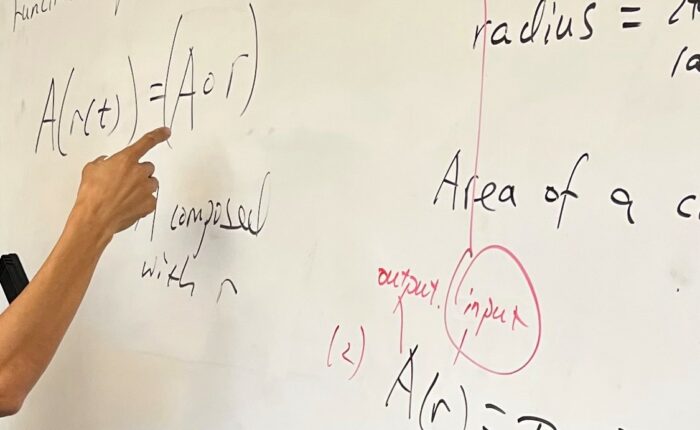 A(r(t)) = (A∘r)
A composed
with r
radius =
Area of a c
output. input
(2)
A(r) =